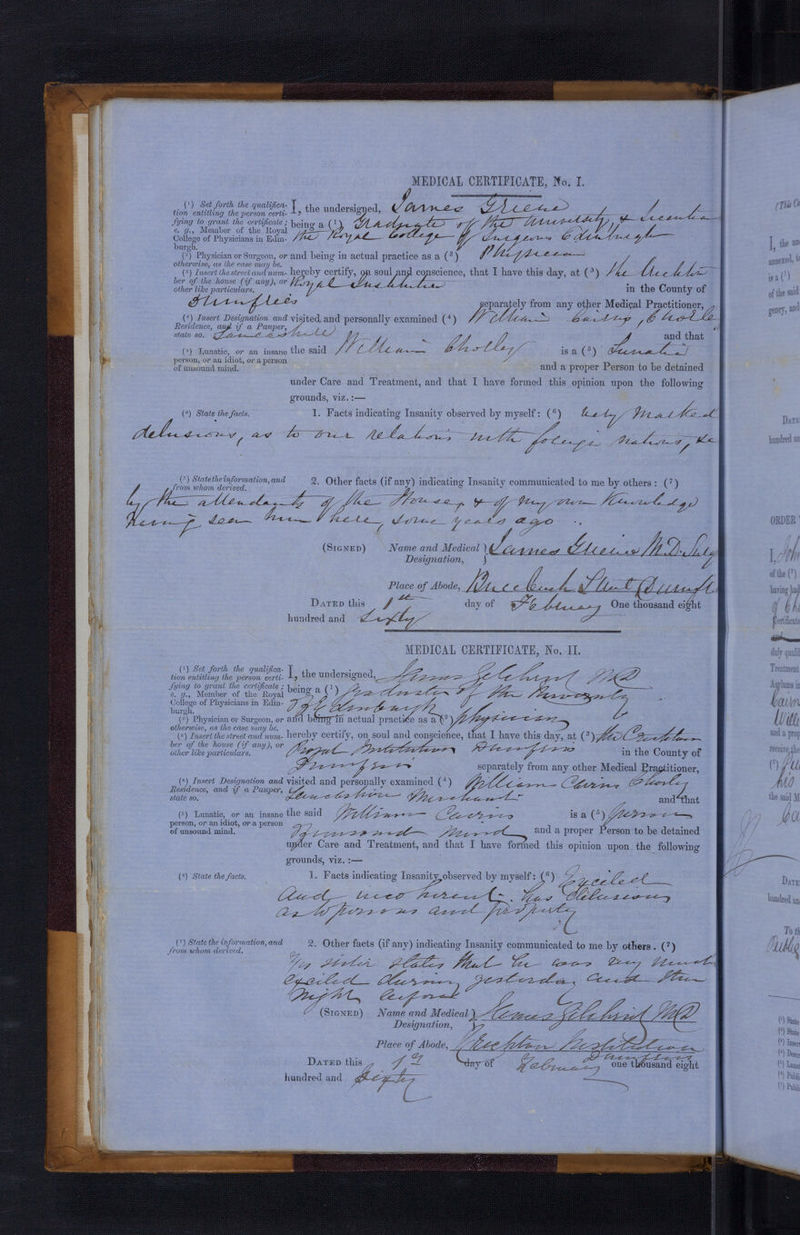 MEDICAL CERTIFICATE, No. I.
(¹) Set forth the qualifica-
tion entitling the person certi-
fying to grant the certificate;
e. g., Member of the Royal
College of Physicians in Edin-
burgh.
I, the undersigned, James Grieve
being a (¹) Graduate of the University, & Licentiate
the Royal College of Surgeons Edinburgh
(²) Physician or Surgeon, or
otherwise, as the case may be.
and being in actual practice as a (²) Physician
(³) Insert the street and num-
ber of the house (if any), or
other like particulars.
hereby certify, on soul and conscience, that I have this day, at (³) the Crichton
Royal Institution in the County of
Dumfries separately from any other Medical Practitioner,
(⁴) Insert Designation and
Residence, and if a Pauper,
state so.
visited and personally examined (⁴) William Cairns, Chorley
Lancashire and that
(⁵) Lunatic, or an insane
person, or an idiot, or a person
of unsound mind.
the said William Chorley is a (⁵) Lunatic
and a proper Person to be detained
under Care and Treatment, and that I have formed this opinion upon the following
grounds, viz.:—
(⁶) State the facts.
1. Facts indicating Insanity observed by myself: (⁶) very marked
delusions, as to our relations with foreign nations, &c
(⁷) State the information, and
from whom derived.
2. Other facts (if any) indicating Insanity communicated to me by others: (⁷)
by the attendants of the House, & of my own knowledge
having seen him here, some years ago
(SIGNED) Name and Medical Designation, James Grieve M.D.
Place of Abode, Buccleuch Street Dumfries
DATED this 1st day of February One thousand eight
hundred and Sixty
MEDICAL CERTIFICATE, No. II.
(¹) Set forth the qualifica-
tion entitling the person certi-
fying to grant the certificate;
e. g., Member of the Royal
College of Physicians in Edin-
burgh.
I, the undersigned, James Gilchrist MD
being a (¹) Graduate of the University
of Edinburgh
(²) Physician or Surgeon, or
otherwise, as the case may be.
and being in actual practice as a (²) physician
(³) Insert the street and num-
ber of the house (if any), or
other like particulars.
hereby certify, on soul and conscience, that I have this day, at (³) the Crichton
Royal Institution Dumfries in the County of
Dumfries separately from any other Medical Practitioner,
(⁴) Insert Designation and
Residence, and if a Pauper,
state so.
visited and personally examined (⁴) William Cairns Chorley
Lancashire Merchant and that
(⁵) Lunatic, or an insane
person, or an idiot, or a person
of unsound mind.
the said William Cairns is a (⁵) person
of unsound mind and a proper Person to be detained
under Care and Treatment, and that I have formed this opinion upon the following
grounds, viz.:—
(⁶) State the facts.
1. Facts indicating Insanity observed by myself: (⁶) Excited
and incoherent. has delusions
as to persons and property
(⁷) State the information, and
from whom derived.
2. Other facts (if any) indicating Insanity communicated to me by others. (⁷)
His sister states that he was very much
excited during yesterday and the
night before
(SIGNED) Name and Medical Designation, James Gilchrist MD
Place of Abode, Crichton Institution
Dumfries
DATED this 1st day of February one thousand eight
hundred and Sixty
I, the
annexed,
is a (¹)
of the said
DATE
hundred an
ORDER
I, John
of the (²)
having
certificate
duly quali
Treatment
and a prop
receive
the said
DATE
hundred an
To th